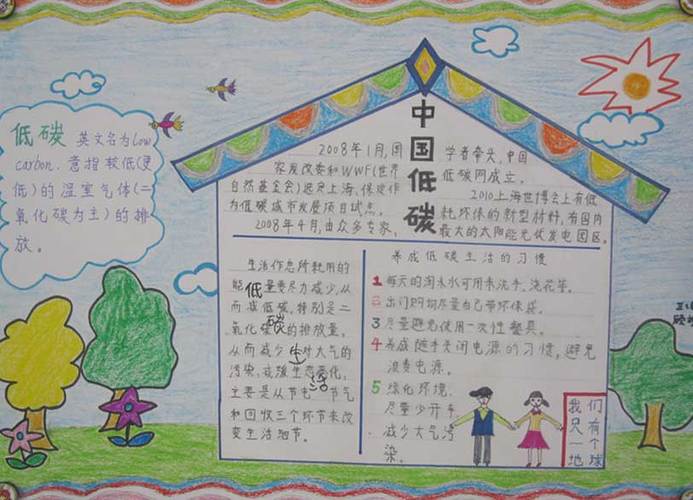 低碳 英文名为low
carbon. 意指较低(更
低)的温室气体(二
氧化碳为主)的排
放。
中国低碳
2008年1月,国
家发改委和WWF(世界
自然基金会)选定上海、保定作
为低碳城市发展项目试点。
2008年4月,由众多专家、
学者牵头,中国
低碳网成立。
2010上海世博会上有低
耗环保的新型材料,有国内
最大的太阳能光伏发电园区。
低碳生活
生活作息所耗用的
能量要尽力减少,从
而减低碳,特别是二
氧化碳的排放量,
从而减少对大气的
污染,减缓生态恶化,
主要是从节电 节气
和回收三个环节来改
变生活细节。
养成低碳生活的习惯
1 每天的淘米水可用来洗手、浇花等。
2 出门购物尽量自己带环保袋。
3 尽量避免使用一次性餐具。
4 养成随手关闭电源的习惯,避免
浪费电源。
5 绿化环境,
尽量少开车
减少大气污
染。
我们
只有
一个
地球